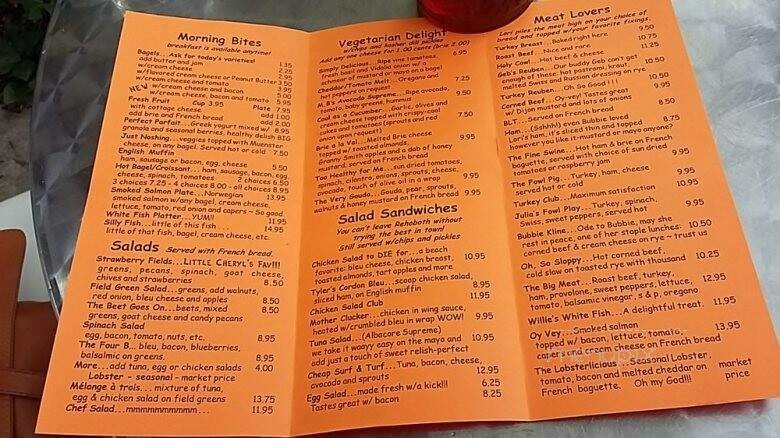 Morning Bites
breakfast is available anytime!
Bagels...Ask for today's varieties! 1.35
add butter and jam 2.25
w/cream cheese 2.95
w/flavored cream cheese or Peanut Butter 3.50
w/cream cheese and tomato 3.95
NEW w/cream cheese and bacon
w/cream cheese, bacon and tomato 5.95
Fresh Fruit Cup 3.95 Plate 7.95
with cottage cheese add 1.00
add brie and French bread add 2.00
Perfect Parfait...Greek yogurt mixed w/ 8.95
granola and seasonal berries, healthy delish BIG
Just Noshing...veggies topped with Muenster
cheese, on any bagel. Served hot or cold 7.50
English Muffin
ham, sausage or bacon, egg, cheese 5.50
Hot Bagel/Croissant... ham, sausage, bacon, egg
cheese, spinach, tomatoes 2 choices 6.50
3 choices 7.25 - 4 choices 8.00 - all choices 8.95
Smoked Salmon Plate...Norwegian 13.95
smoked salmon w/any bagel, cream cheese,
lettuce, tomato, red onion and capers ~ So good
White Fish Platter...YUM!! 11.95
Silly Fish... little of this fish . . . 14.95
little of that fish, bagel, cream cheese, etc.
Salads Served with French bread.
Strawberry Fields...LITTLE CHERYL'S FAV!!!
greens, pecans, spinach, goat cheese,
chives and strawberries 8.50
Field Green Salad...greens, add walnuts,
red onion, bleu cheese and apples 8.50
The Beet Goes On...beets, mixed 8.50
greens, goat cheese and candy pecans
Spinach Salad
egg, bacon, tomato, nuts, etc. 8.95
The Four B... bleu, bacon, blueberries,
balsalmic on greens. 8.95
More...add tuna, egg or chicken salads 4.00
Lobster - seasonal - market price
Mélange à trois... mixture of tuna,
egg & chicken salad on field greens 13.75
Chef Salad...mmmmmmmmm... 11.95
Vegetarian Delight
w/chips and kosher dill pickles
Add any one cheese for 1.00 cents (brie 2.00)
Simply Delicious...Ripe vine tomatoes, 6.95
fresh basil and Vidalia onion w/ a
schmear of mustard or mayo on a bagel
Cheddar/Tomato Melt...Oregano and 7.25
hot peppers on request
M.B's Avocado Supreme...Ripe avocado, 9.50
tomato, baby greens, hummus
Cool as a Cucumber...Garlic, olives and
cream cheese topped with crispy cool
cukes and tomatoes (sprouts and red 7.50
onion upon request)
Brie a la Val...Melted Brie cheese 9.95
topped w/ toasted almonds,
Granny Smith apples and a dab of honey
mustard, served on French bread
Too Healthy for Me...sun dried tomatoes,
spinach, cilantro, onions, sprouts, cheese,
avocado, touch of olive oil in a wrap 9.95
The Very Gouda...Gouda, pear, sprouts,
walnuts & honey mustard on French bread 9.95
Salad Sandwiches
You can't leave Rehoboth without
trying the best in town!
Still served w/chips and pickles
Chicken Salad to DIE for...a beach
favorite: bleu cheese, chicken breast, 10.95
toasted almonds, tart apples and more
Tyler's Cordon Bleu...scoop chicken salad,
sliced ham, on English muffin 8.95
Chicken Salad Club 11.95
Mother Clucker...chicken in wing sauce,
heated w/crumbled bleu in wrap WOW! 9.95
Tuna Salad...(Albacore Supreme)
we take it waaay easy on the mayo and 10.95
add just a touch of sweet relish-perfect
Cheap Surf & Turf...Tuna, bacon, cheese,
avocado and sprouts 12.95
Egg Salad...made fresh w/a kick!!! 6.25
Tastes great w/ bacon 8.25
Meat Lovers
Lori piles the meat high on your choice of
bread and topped w/your favorite fixings.
Turkey Breast...Baked right here 9.95
Roast Beef...Nice and rare 10.75
Holy Cow!...Hot beef & cheese 11.25
Geb's Reuben...Our buddy Geb can't get
enough of these: hot pastrami, kraut,
melted Swiss and Russian dressing on rye 10.50
Turkey Reuben...Oh So Good!!! 10.50
Corned Beef...Oy~vey! Tastes great
w/ Dijon mustard and lots of onions 9.95
BLT...Served on French bread 8.50
Ham...(Shhhh) even Bubbie loved
Lori's ham, it's sliced thin and topped
however you like it-mustard or mayo anyone? 8.75
The Fine Swine...Hot ham & brie on French
baguette, served with choice of sun dried 9.95
tomatoes or raspberry jam
The Fowl Pig...Turkey, ham, cheese 9.95
served hot or cold
Turkey Club...Maximum satisfaction 10.95
Julia's Fowl Play...Turkey, spinach,
Swiss, sweet peppers, served hot 9.95
Bubbie Kline...Ode to Bubbie, may she
rest in peace, one of her staple lunches: 10.50
corned beef & cream cheese on rye ~ trust us
Oh, So Sloppy...Hot corned beef,
cold slaw on toasted rye with thousand 10.25
The Big Meat...Roast beef, turkey,
ham, provolone, sweet peppers, lettuce, 12.95
tomato, balsamic vinegar, s & p, oregano
Willie's White Fish...A delightful treat. 11.95
Oy Vey...Smoked salmon
topped w/ bacon, lettuce, tomato, 13.95
capers, cream cheese on French bread
The Lobsterlicious...Seasonal Lobster,
tomato, bacon and melted cheddar on market
French baguette. Oh my God!!! price